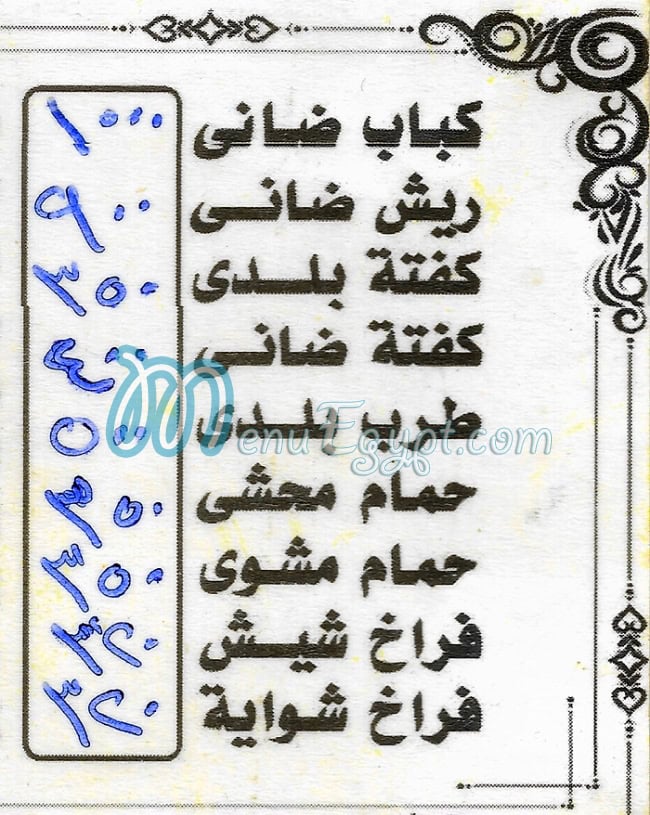 كباب ضانى ١٠٠٠
ريش ضانى ٩٠٠
كفتة بلدى ٣٥٠
كفتة ضانى ٤٠٠
طرب بلدى ٥٠٠
حمام محشى
حمام مشوى ٣٥٠
فراخ شيش
فراخ شواية
MenuEgypt.com